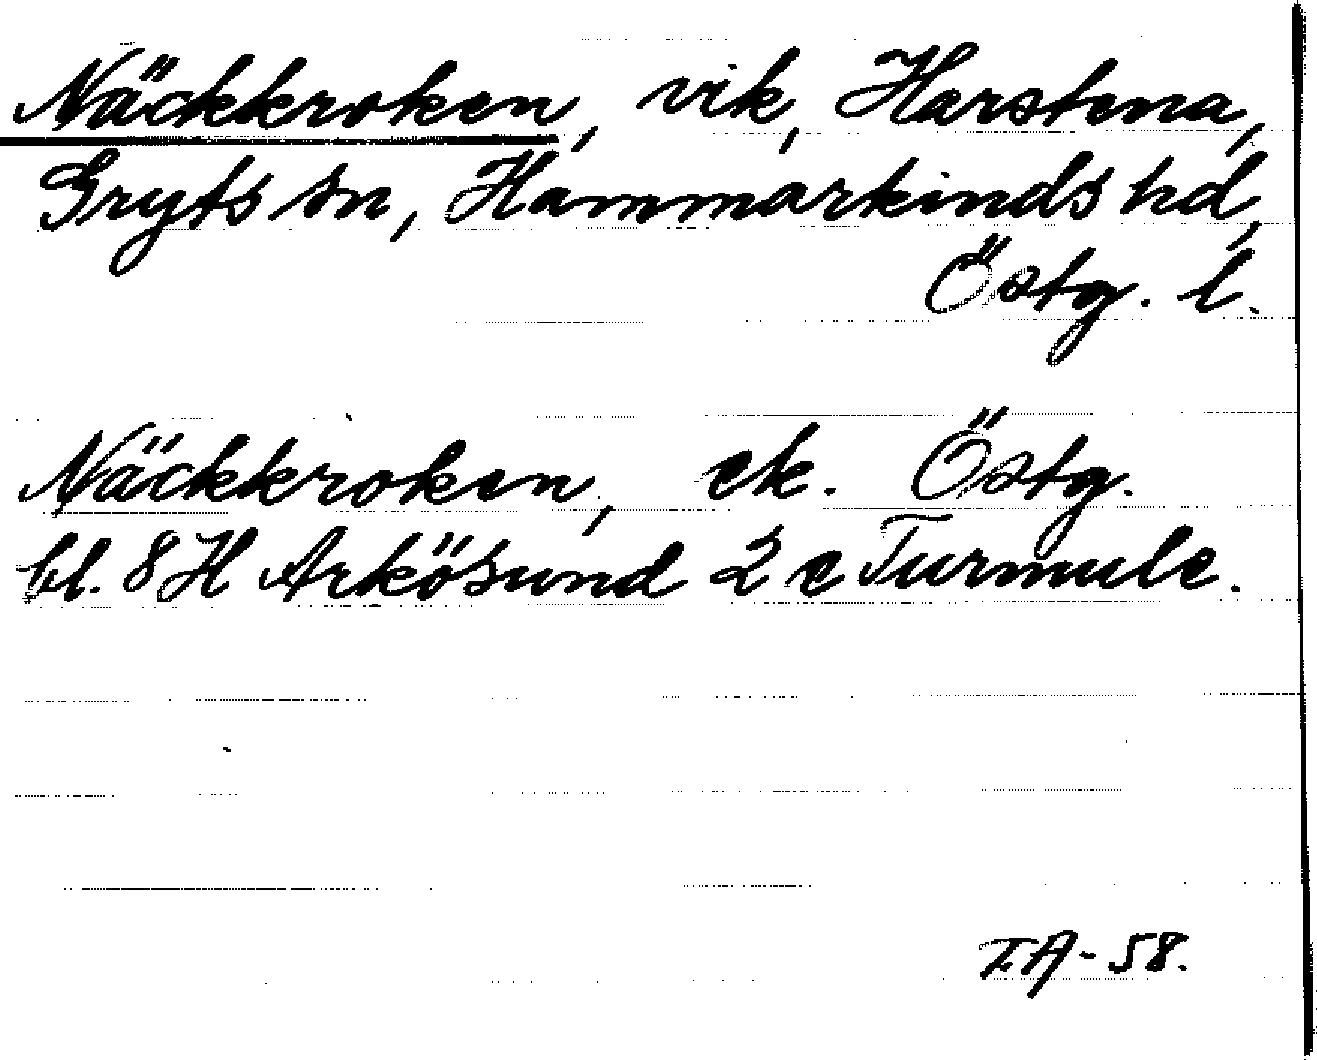 Näckkroken, vik, Harstena,
Gryts sn, Hammarkinds hd,
Östg. l.
Näckkroken, ek. Östg.
bl. 8 H Arkösund 2 c Turmule.
T.A-58.